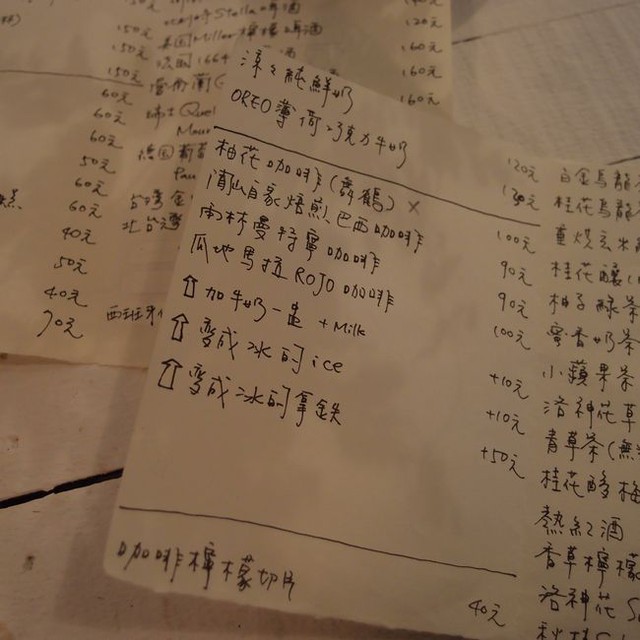 Stella啤酒
美國Miller
法國1664
150元
150元
150元
60元
60元
60元
50元
60元
60元
40元
50元
40元
70元
120元
160元
160元
160元
德國
台灣金
北台灣
西班牙
純鮮奶
OREO薄荷巧克力牛奶 120元
130元
柚花咖啡(舞鶴) × 100元
自家焙煎巴西咖啡 90元
雨林曼特寧咖啡 90元
瓜地馬拉ROJO咖啡 100元
⇧加牛奶一律 +Milk +10元
⇧變成冰的ice +10元
⇧變成冰的拿鐵 +50元
咖啡檸檬切片 40元
白金烏龍
桂花烏龍
桂花釀
柚子綠茶
蜜香奶茶
小蘋果茶
洛神花草
青草茶(無
桂花酸梅
熱紅酒
香草檸檬
洛神花